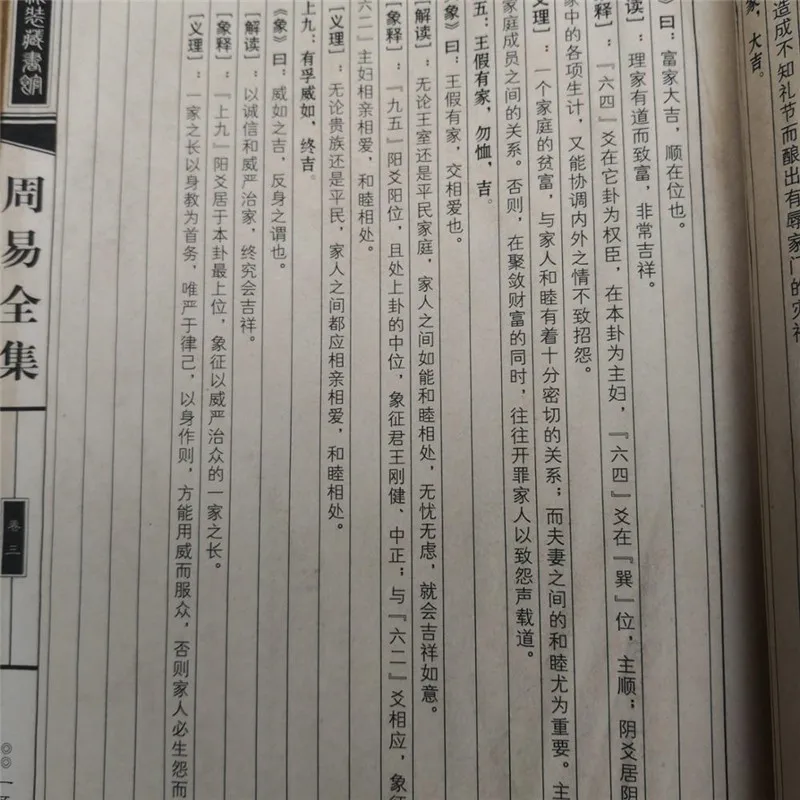 造成不知礼节而酿出有辱家门的灾祸
家，大吉。
》曰：富家大吉，顺在位也。
解读］：理家有道而致富，非常吉祥。
释］：『六四』爻在它卦为权臣，在本卦为主妇，『六四』爻在『巽』位，主顺；阴爻居阴
家中的各项生计，又能协调内外之情不致招怨。
义理］：一个家庭的贫富，与家人和睦有着十分密切的关系；而夫妻之间的和睦尤为重要。主
家庭成员之间的关系。否则，在聚敛财富的同时，往往开罪家人以致怨声载道。
五：王假有家，勿恤，吉。
象》曰：王假有家，交相爱也。
［解读］：无论王室还是平民家庭，家人之间如能和睦相处，无忧无虑，就会吉祥如意。
［象释］：『九五』阳爻阳位，且处上卦的中位，象征君王刚健、中正；与『六二』爻相应，象征
六二』主妇相亲相爱，和睦相处。
［义理］：无论贵族还是平民，家人之间都应相亲相爱，和睦相处。
上九：有孚威如，终吉。
《象》曰：威如之吉，反身之谓也。
［解读］：以诚信和威严治家，终究会吉祥。
［象释］：『上九』阳爻居于本卦最上位，象征以威严治众的一家之长。
［义理］：一家之长以身教为首务，唯严于律己，以身作则，方能用威而服众，否则家人必生怨而
装藏书馆
周易全集
卷三
〇〇一